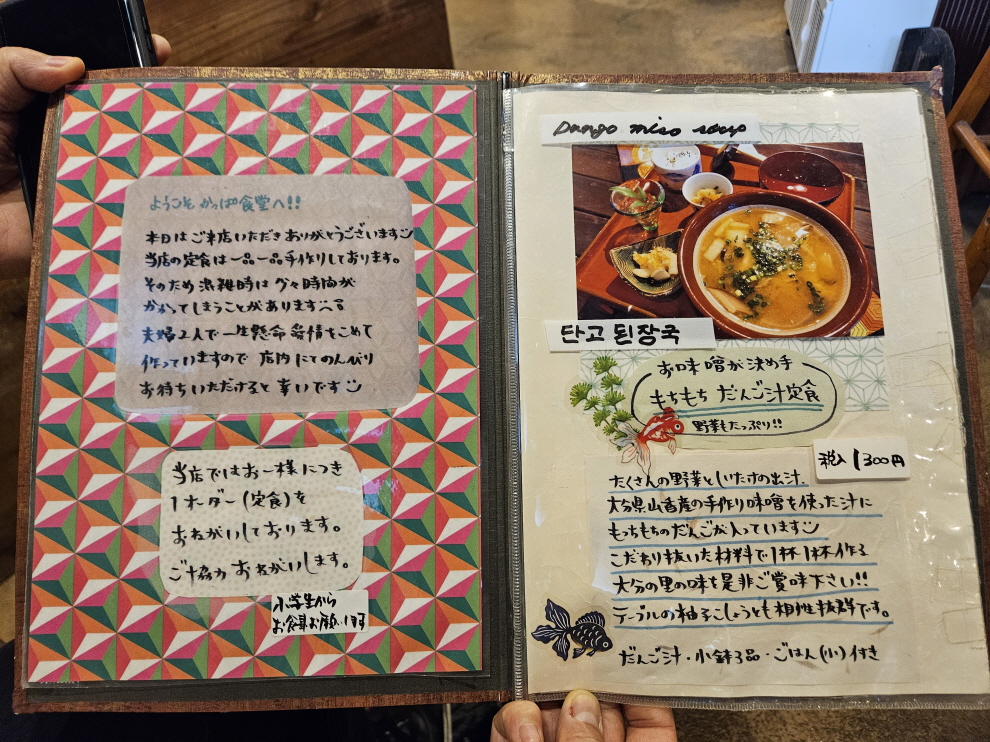 ようこそ かっぱ食堂へ!!
本日はご来店いただきありがとうございます
当店の定食は一品一品手作りしております。
そのため混雑時は少々時間が
かかってしまうことがあります
夫婦2人で一生懸命愛情をこめて
作っていますので 店内にてのんびり
お待ちいただけると幸いです
当店ではお一様につき
1オーダー(定食)を
おねがいしております。
ご協力おねがいします。
小学生から
お食事お願いします
Dango miso soup
단고 된장국
お味噌が決め手
もちもち だんご汁定食
野菜もたっぷり!!
税込1300円
たくさんの野菜としいたけの出汁.
大分県山香産の手作り味噌を使った汁に
もっちもちのだんごが入っています
こだわり抜いた材料で1杯1杯作る
大分の里の味を是非ご賞味下さい!!
テーブルの柚子こしょうとも相性抜群です。
だんご汁・小鉢3品・ごはん(小)付き